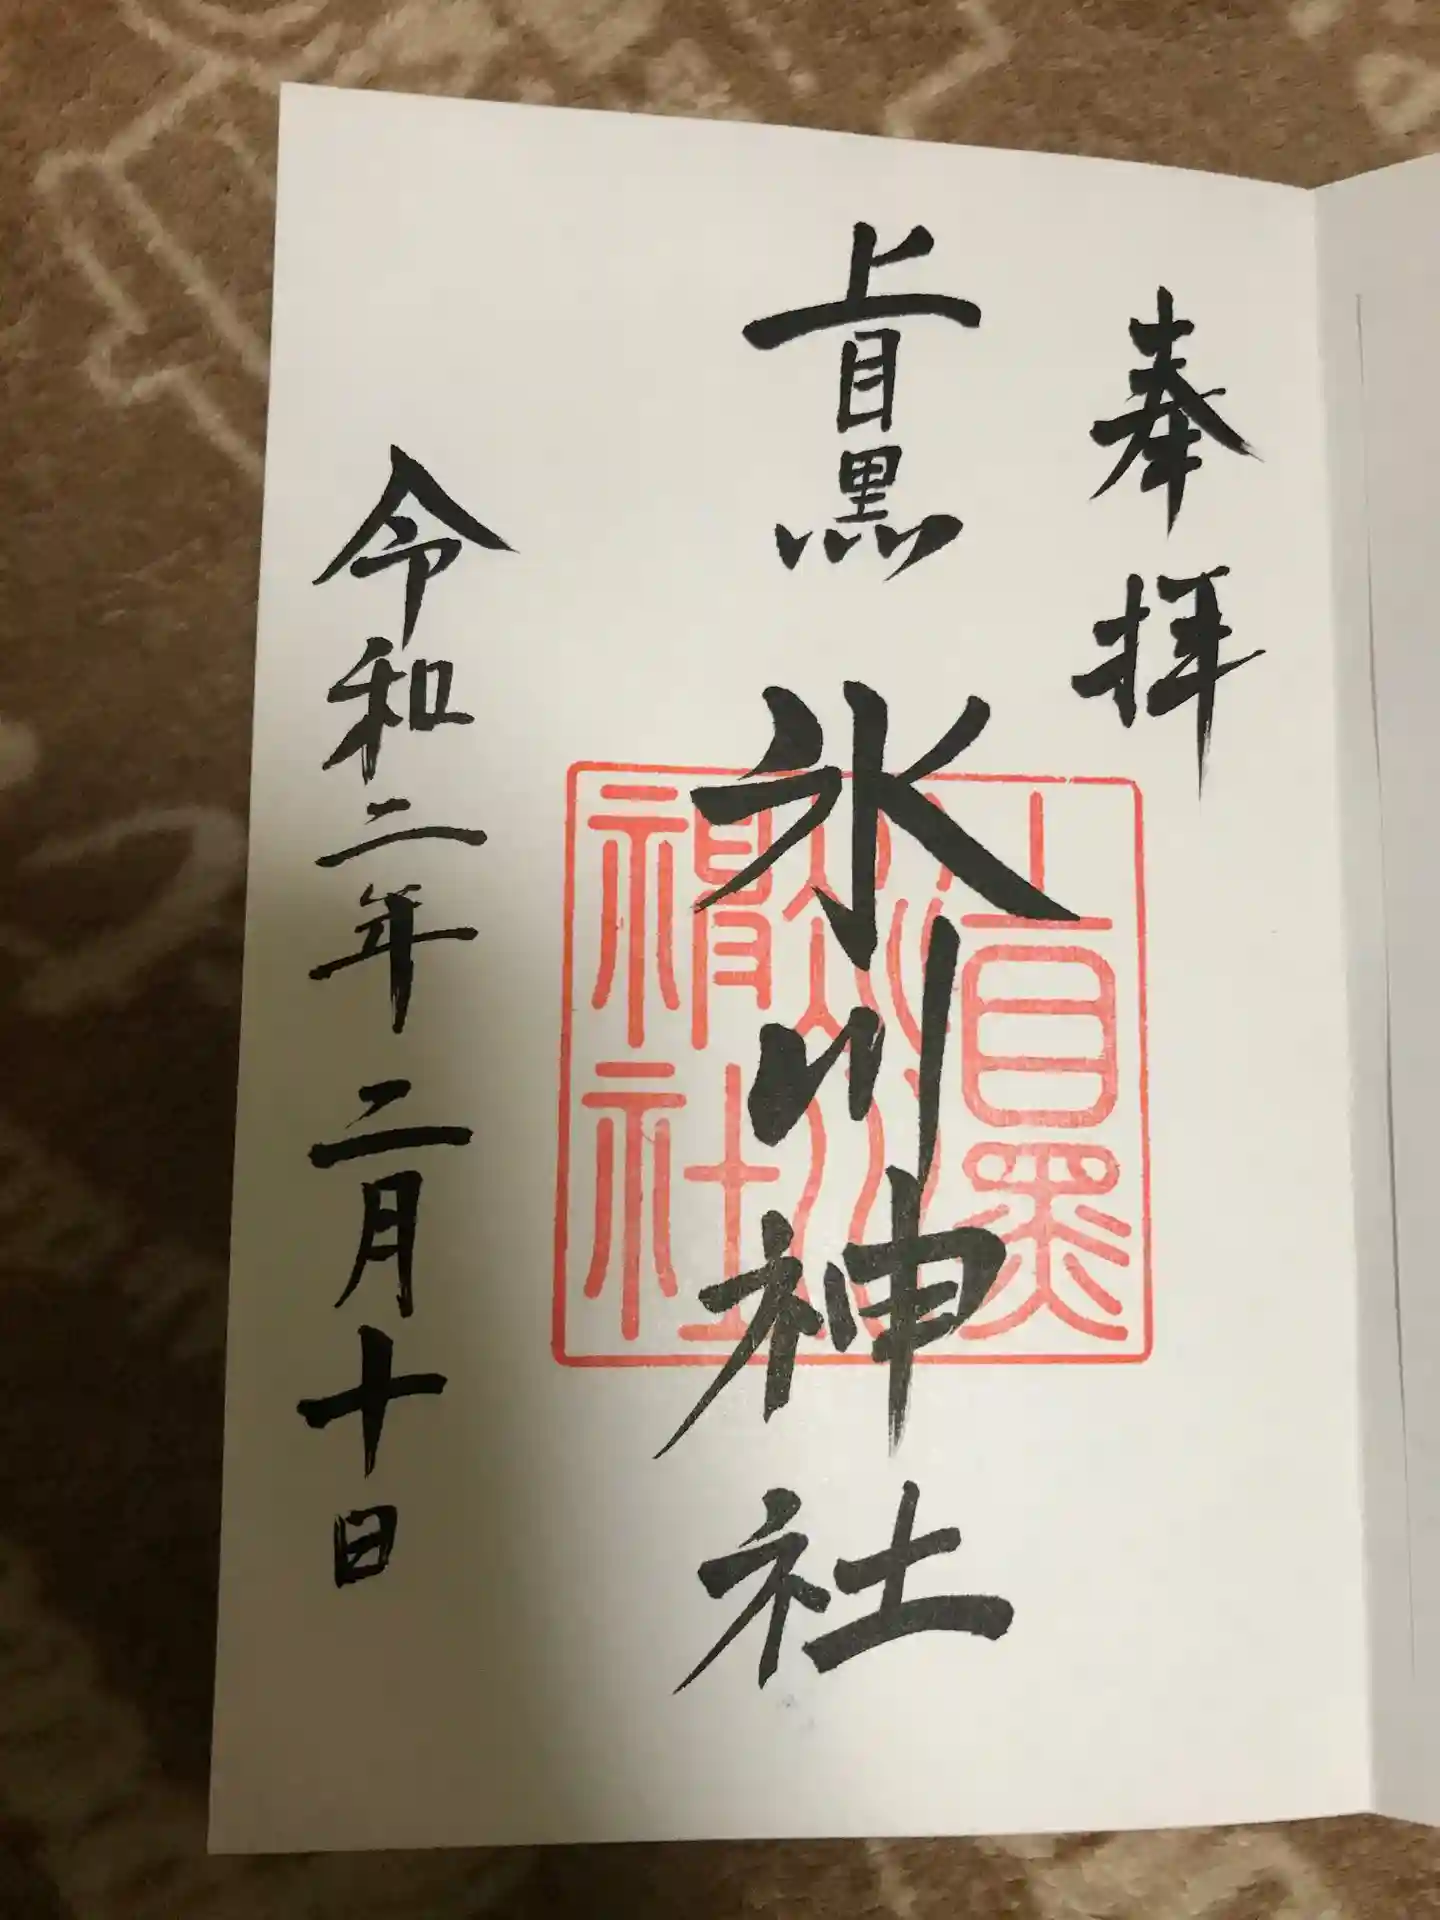 奉拝
上目黒
氷川神社
令和二年二月十日
上目黒
氷川
神社